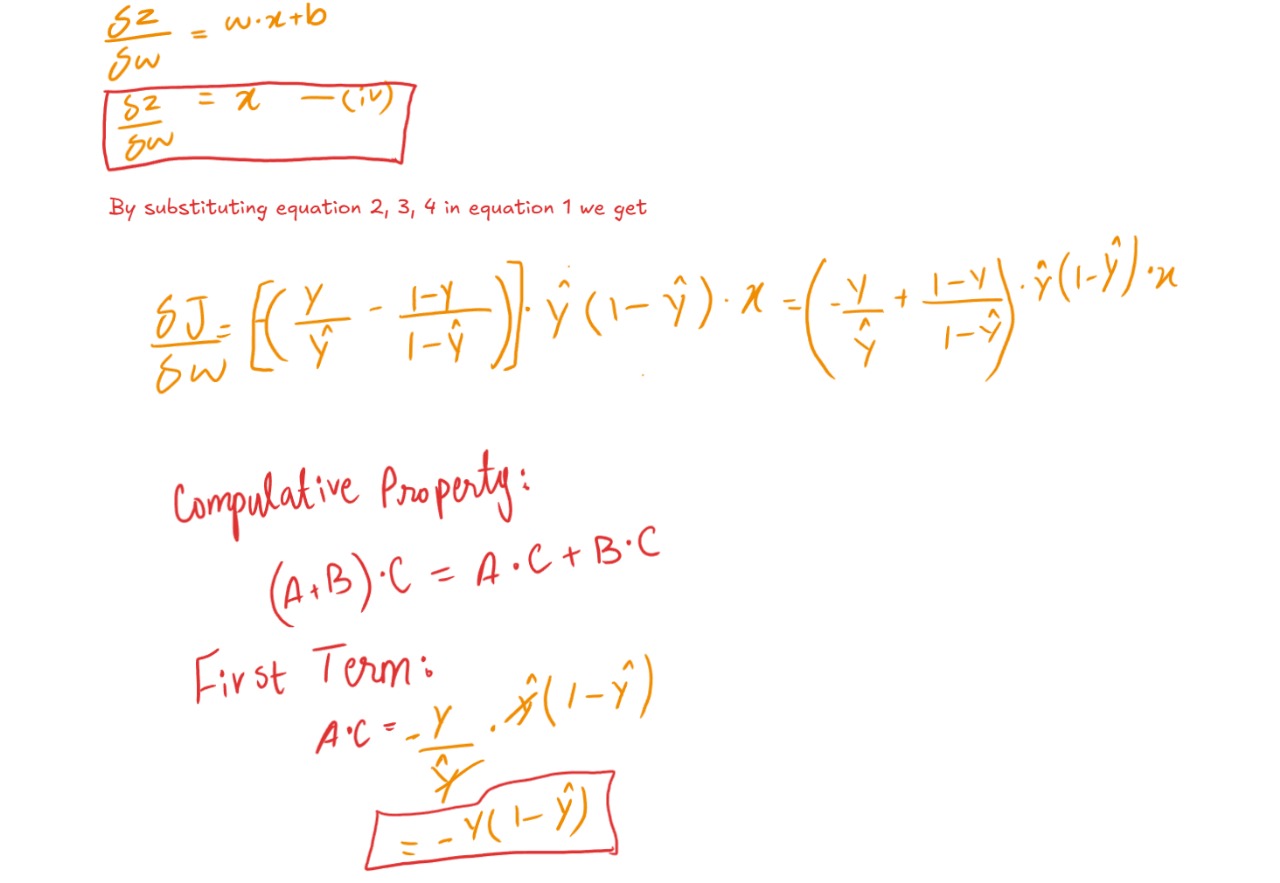 δz/δw = w·x+b
δz/δw = x —(iv)
By substituting equation 2, 3, 4 in equation 1 we get
δJ/δw = [-(y/ŷ - 1-y/1-ŷ)]· ŷ(1-ŷ)·x = (-y/ŷ + 1-y/1-ŷ)·ŷ(1-ŷ)·x
Compulative Property:
(A+B)·C = A·C+B·C
First Term:
A·C = -y/ŷ · ŷ(1-ŷ)
= -y(1-ŷ)